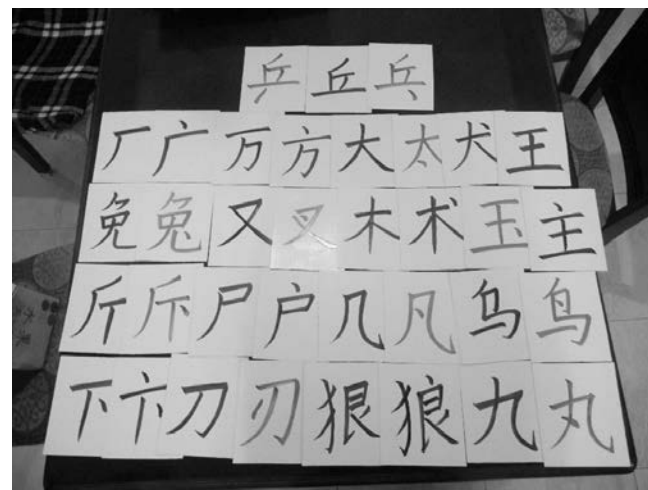 乒丘乓
厂广万方大太犬王
免兔又叉木术玉主
斤斥尸户几凡乌鸟
下卞刀刃狠狼九丸